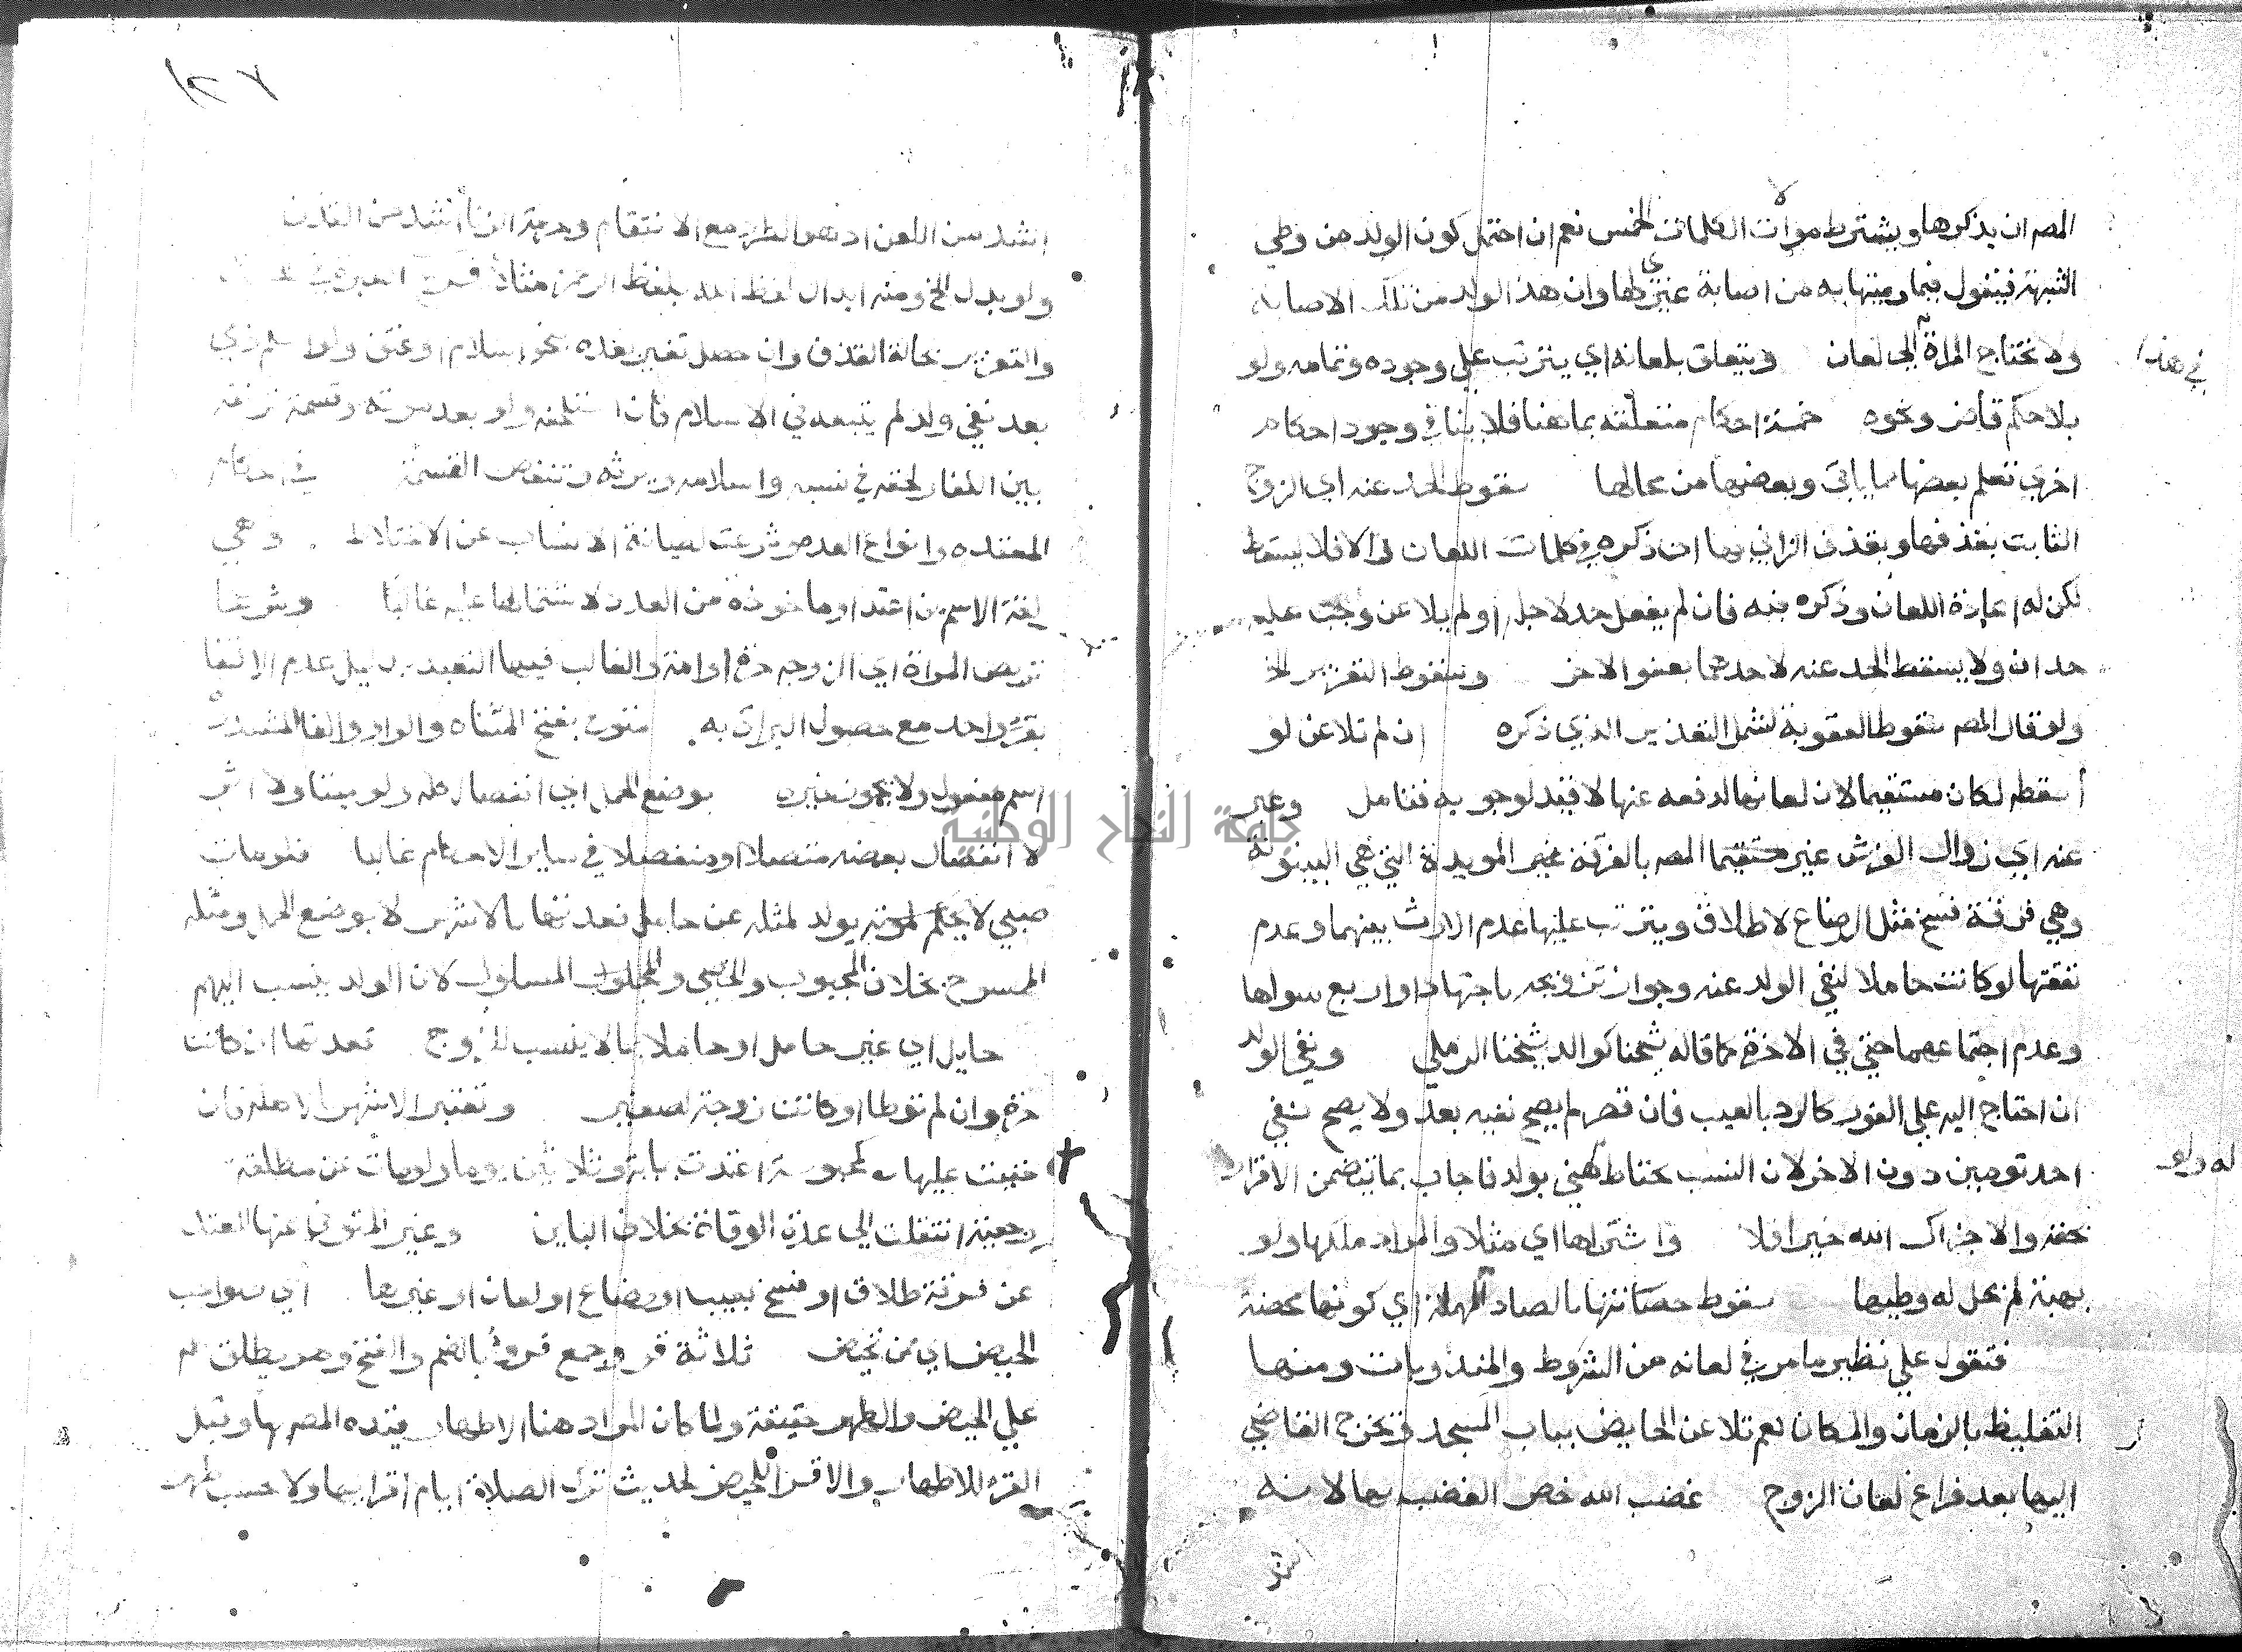 المص ان يذكرها ويشترط موالات الكلمات الخمس نعم ان احتمل كون الولد من وطي
الشبهة فيقول فيما رميتها به من اصابة غيري لها وان هذا الولد من تلك الاصابة
ولا تحتاج المراة الي لعان ويتعلق بلعانه اي يترتب علي وجوده وتمامه ولو
في هذا
بلا حكم قاض ونحوه خمسة احكام متعلقة بما هنا فلا ينافي وجود احكام
اخري تعلم بعضها مما ياتي وبعضها من محالها سقوط الحد عنه اي الزوج
الثابت بقذفها وبقذف الزاني بها ان ذكره في كلمات اللعان والا فلا يسقط
لكن له اعادة اللعان وذكره بنه فان لم يفعل حد لاجله او لم يلاعن وجب عليه
حدان ولا يسقط الحد عنه لاحدهما بعفو الاخر وسقوط التعزير الخ
ولو قال المص سقوط العقوبة لشمل التعذير الذي ذكره ان لم تلاعن لو
أسقطه لكان مستقيما لان لعانها لدفعه عنها لا قيد لوجوبه فتامل وعبر
عنه اي زوال الفرش غير مستقيما المص بالفرقة غير المويدة التي هي البينونة
وهي فرقة فسخ مثل الرضاع لا طلاق ويترتب عليها عدم الارث بينهما وعدم
نفقتها لو كانت حاملا لنفي الولد عنه وجواز تزويجه باختها او اربع سواها
وعدم اجتماعهما حتي في الاخرة كما قاله شيخنا كوالد شيخنا الرملي ونفي الولد
ان احتاج اليه علي الفور كالرد بالعيب فان قصر لم يصح نفيه بعد ولا يصح نفي
احد تومين دون الاخر لان النسب يحتاط كهني بولد فاجاب بما يتضمن الاقرار
له ولو
لحقه والا جزاك الله خيرا فلا واشتراها اي مثلا والمراد ملكها ولو
بهبة لم يحل له وطيها سقوط حصانتها بالصاد المهملة اي كونها محصنة
فتقول علي نظير ما مر في لعانه من الشروط والمندوبات ومنها
التغليظ بالزمان والمكان نعم تلاعن الحايض بباب المسجد فيخرج القاضي
اليها بعد فراغ لعان الزوج غضب الله خص الغضب بها لانه
اشد
١٢٧
اشد من اللعن اذ هو الطرد مع الانتقام وجريمة الزنا أشد من القذف
ولو بدل الخ ومنه ابدال لفظ الله بلفظ الرحمن مثلا
والتعزير بحالة القذف وان حصل تغير بعده بنحو اسلام او عتق ولو اسلم ذمي
بعد نفي ولد لم يتبعه في الاسلام فان استلحقه ولو بعد موته وقسمة تركته
بين الكفار لحقه في نسبه واسلامه ويرثه وتنقض القسمة في احكام
المعتده وانواع العدد شرعت لصيانة الانساب عن الاختلاط وهي
لغة الاسم من اعتد او ماخوذة من العدد لاشتمالها عليه غالبا وشرعا
تربص المراة اي الزوجه حرة او امة والغالب فيها التعبد بدليل عدم الاكتفا
بقرء واحد مع حصول البراة به متوفى بفتح المثناه والواو والفا المشددة
اسم مفعول ولا يجوز غيره بوضع الحمل اي انفصال كله ولو ميتا ولا اثر
لانفصال بعضه متصلا او منفصلا في ساير الاحكام غالبا فلو مات
صبي لا يحكم لمونه يولد لمثله عن حامل فعدتها بالاشهر لا بوضع الحمل ومثله
الممسوح بخلاف المجبوب والخصي والمجلوب المسلول لان الولد ينسب اليهم
حايل اي غير حامل او حاملا بما لا ينسب للزوج فعدتها ان كانت
حرة وان لم توطا او كانت زوجة لصغير وتعتبر الاشهر بالاهله فان
خفيت عليها كمحبوسة اعتدت بماية وثلاثين يوما ولو مات عن مطلقة
رجعية انتقلت الي عدة الوفاة بخلاف الباين وغير المتوفي عنها المعتدة
عن فرقة طلاق او فسخ بعيب او رضاع او لعان او غيرها اي سوا
الحيض اي من تحيض ثلاثة قروء جمع قروء بالضم والفتح وهو يطلق
علي الحيض والطهر حقيقة ولما كان المراد هنا الاطهار قيده المص بها وقيل
القرء للاطهار والاقرا للحيض لحديث تترك الصلاة ايام اقرايها ولا حسب طهر